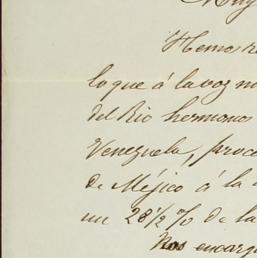 Muy
Hemos re
lo que á la voz m
del Rio hermanos
Venezuela, proce
de Méjico á la
un 28½% de la
Nos encarg